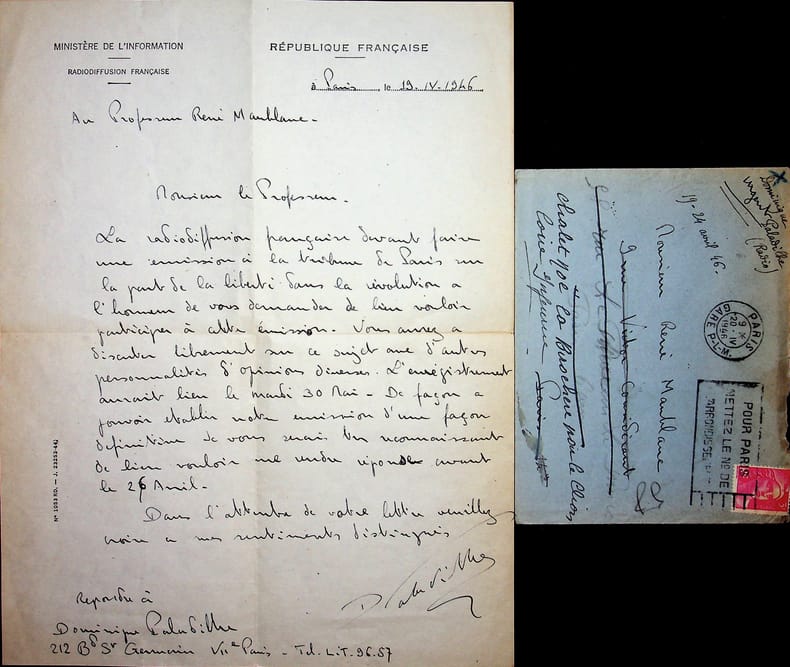 MINISTÈRE DE L'INFORMATION
RADIODIFFUSION FRANÇAISE
RÉPUBLIQUE FRANÇAISE
à Paris, le 19.IV.1946
Au Professeur René Maublanc -
Monsieur le Professeur.
La radiodiffusion française devant faire
une émission à la tribune de Paris sur
la part de la liberté dans la révolution a
l'honneur de vous demander de bien vouloir
participer à cette émission. Vous aurez à
discuter librement sur ce sujet avec d'autres
personnalités d'opinions diverses. L'enregistrement
aurait lieu le mardi 30 Mai - De façon a
pouvoir etablir notre emission d'une façon
definitive je vous serais tres reconnaissant
de bien vouloir me rendre réponse avant
le 26 Avril.
Dans l'attente de votre lettre veuillez
croire a mes sentiments distingués
D Paladilhe
Repondre à
Dominique Paladilhe
212 Bd St Germain VIIe Paris - Tel. LiT. 96.57
Dominique
Paladilhe
(Radio)
urgent
19-24 avril 46.
PARIS
9H
20.IV
1946
GARE P.L.M.
POUR PARIS
METTEZ LE No DE
ARRONDISSEM
Monsieur René Maublanc
rue Victor Considérant
Paris
chalet